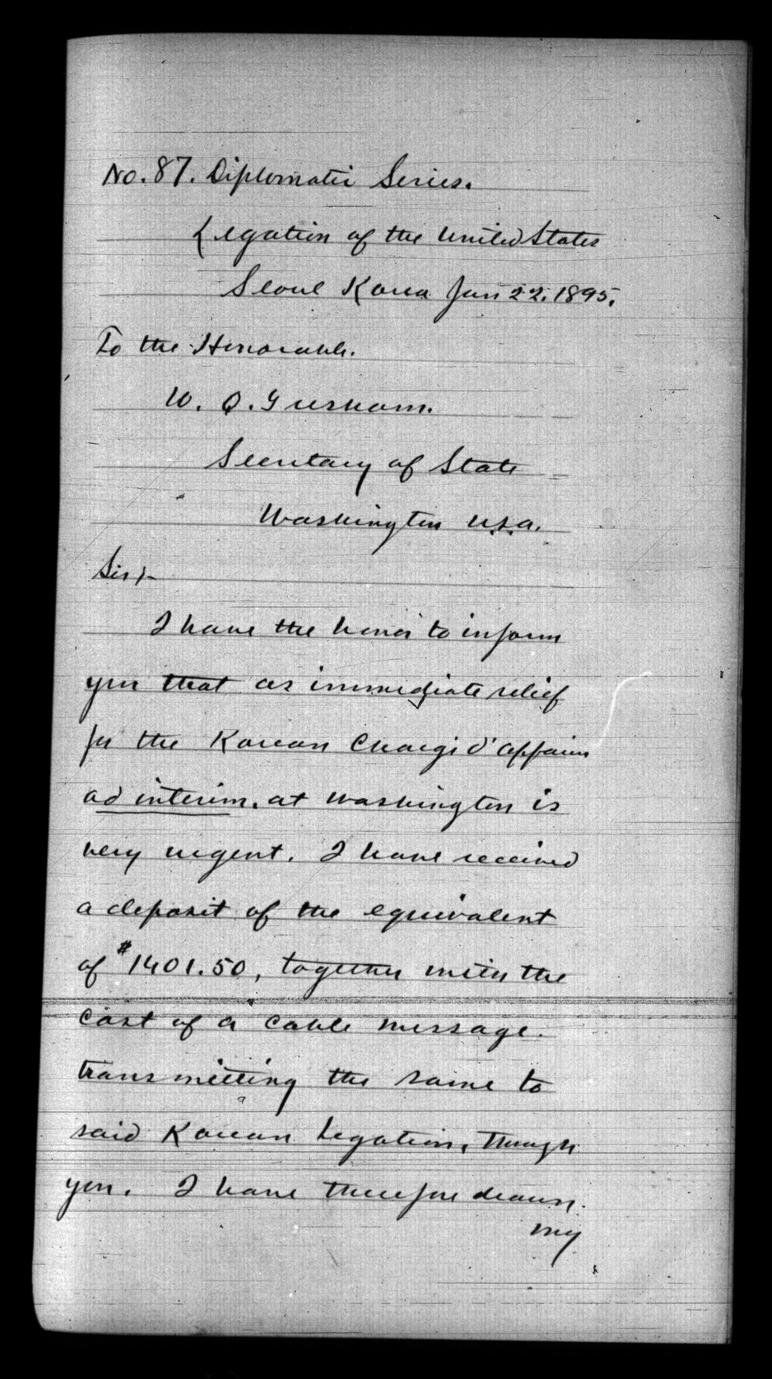 No. 87. Diplomatic Series.
Legation of the United States
Seoul Korea Jan 22. 1895.
To the Honorable.
W. Q. Gresham.
Secretary of State
Washington U.S.A.
Sir:-
I have the honor to inform
you that as immediate relief
for the Korean Chargé d'affaires
ad interim. at Washington is
very urgent. I have received
a deposit of the equivalent
of $1401.50, together with the
cost of a cable message.
transmitting the same to
said Korean Legation, through
you. I have therefore drawn.
my